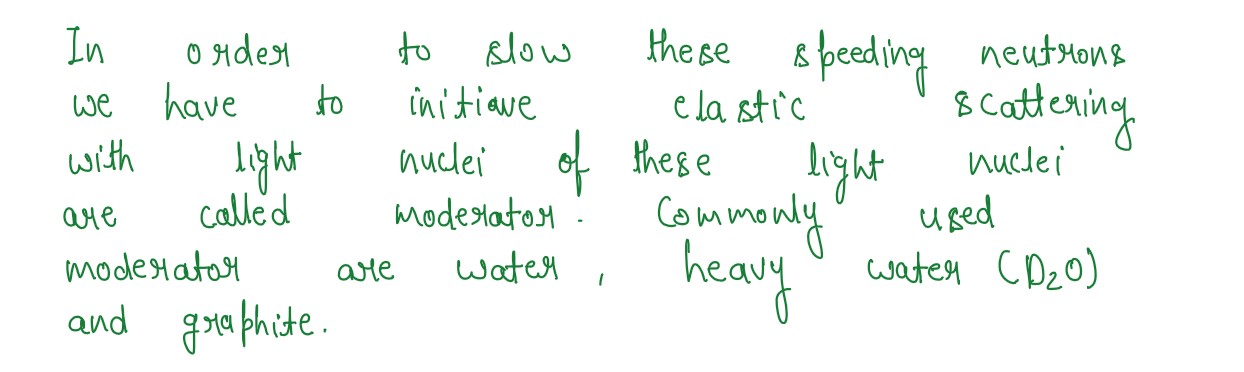 In order to slow these speeding neutrons
we have to initiave elastic scattering
with light nuclei of these light nuclei
are called moderator. Commonly used
moderator are water, heavy water (D₂O)
and graphite.